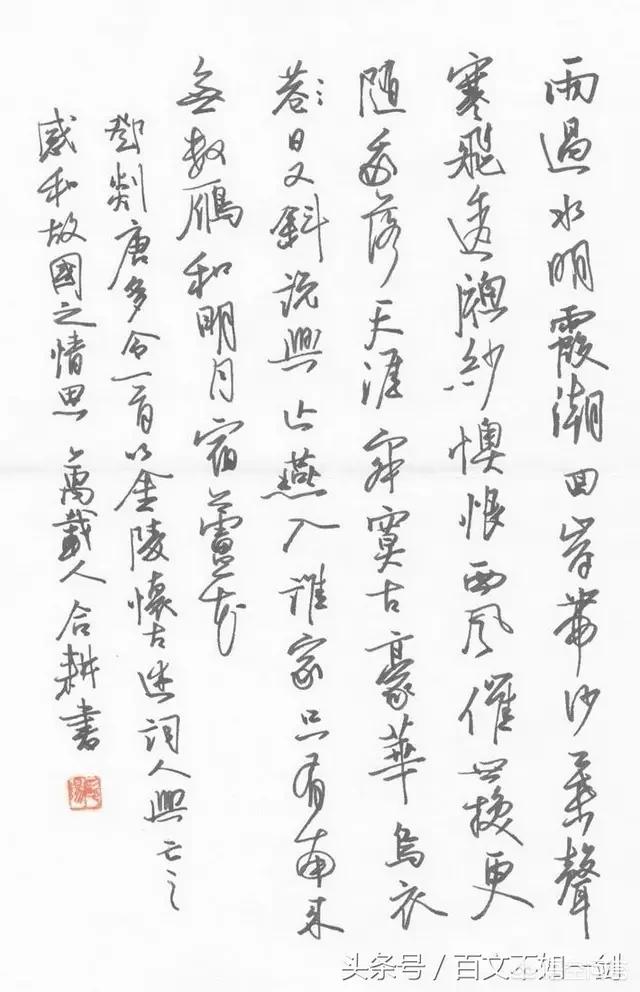 雨過水明霞潮回岸帶沙葉聲
寒飛透牕紗懊恨西風催世換更
隨我落天涯寂寞古豪華烏衣
巷日又斜說興亡燕入誰家只有南來
無數雁和明月宿蘆花
鄧剡唐多令一首以金陵懷古述詞人興亡之
感和故國之情思 萬載人合耕書
头条号 / 百文不如一